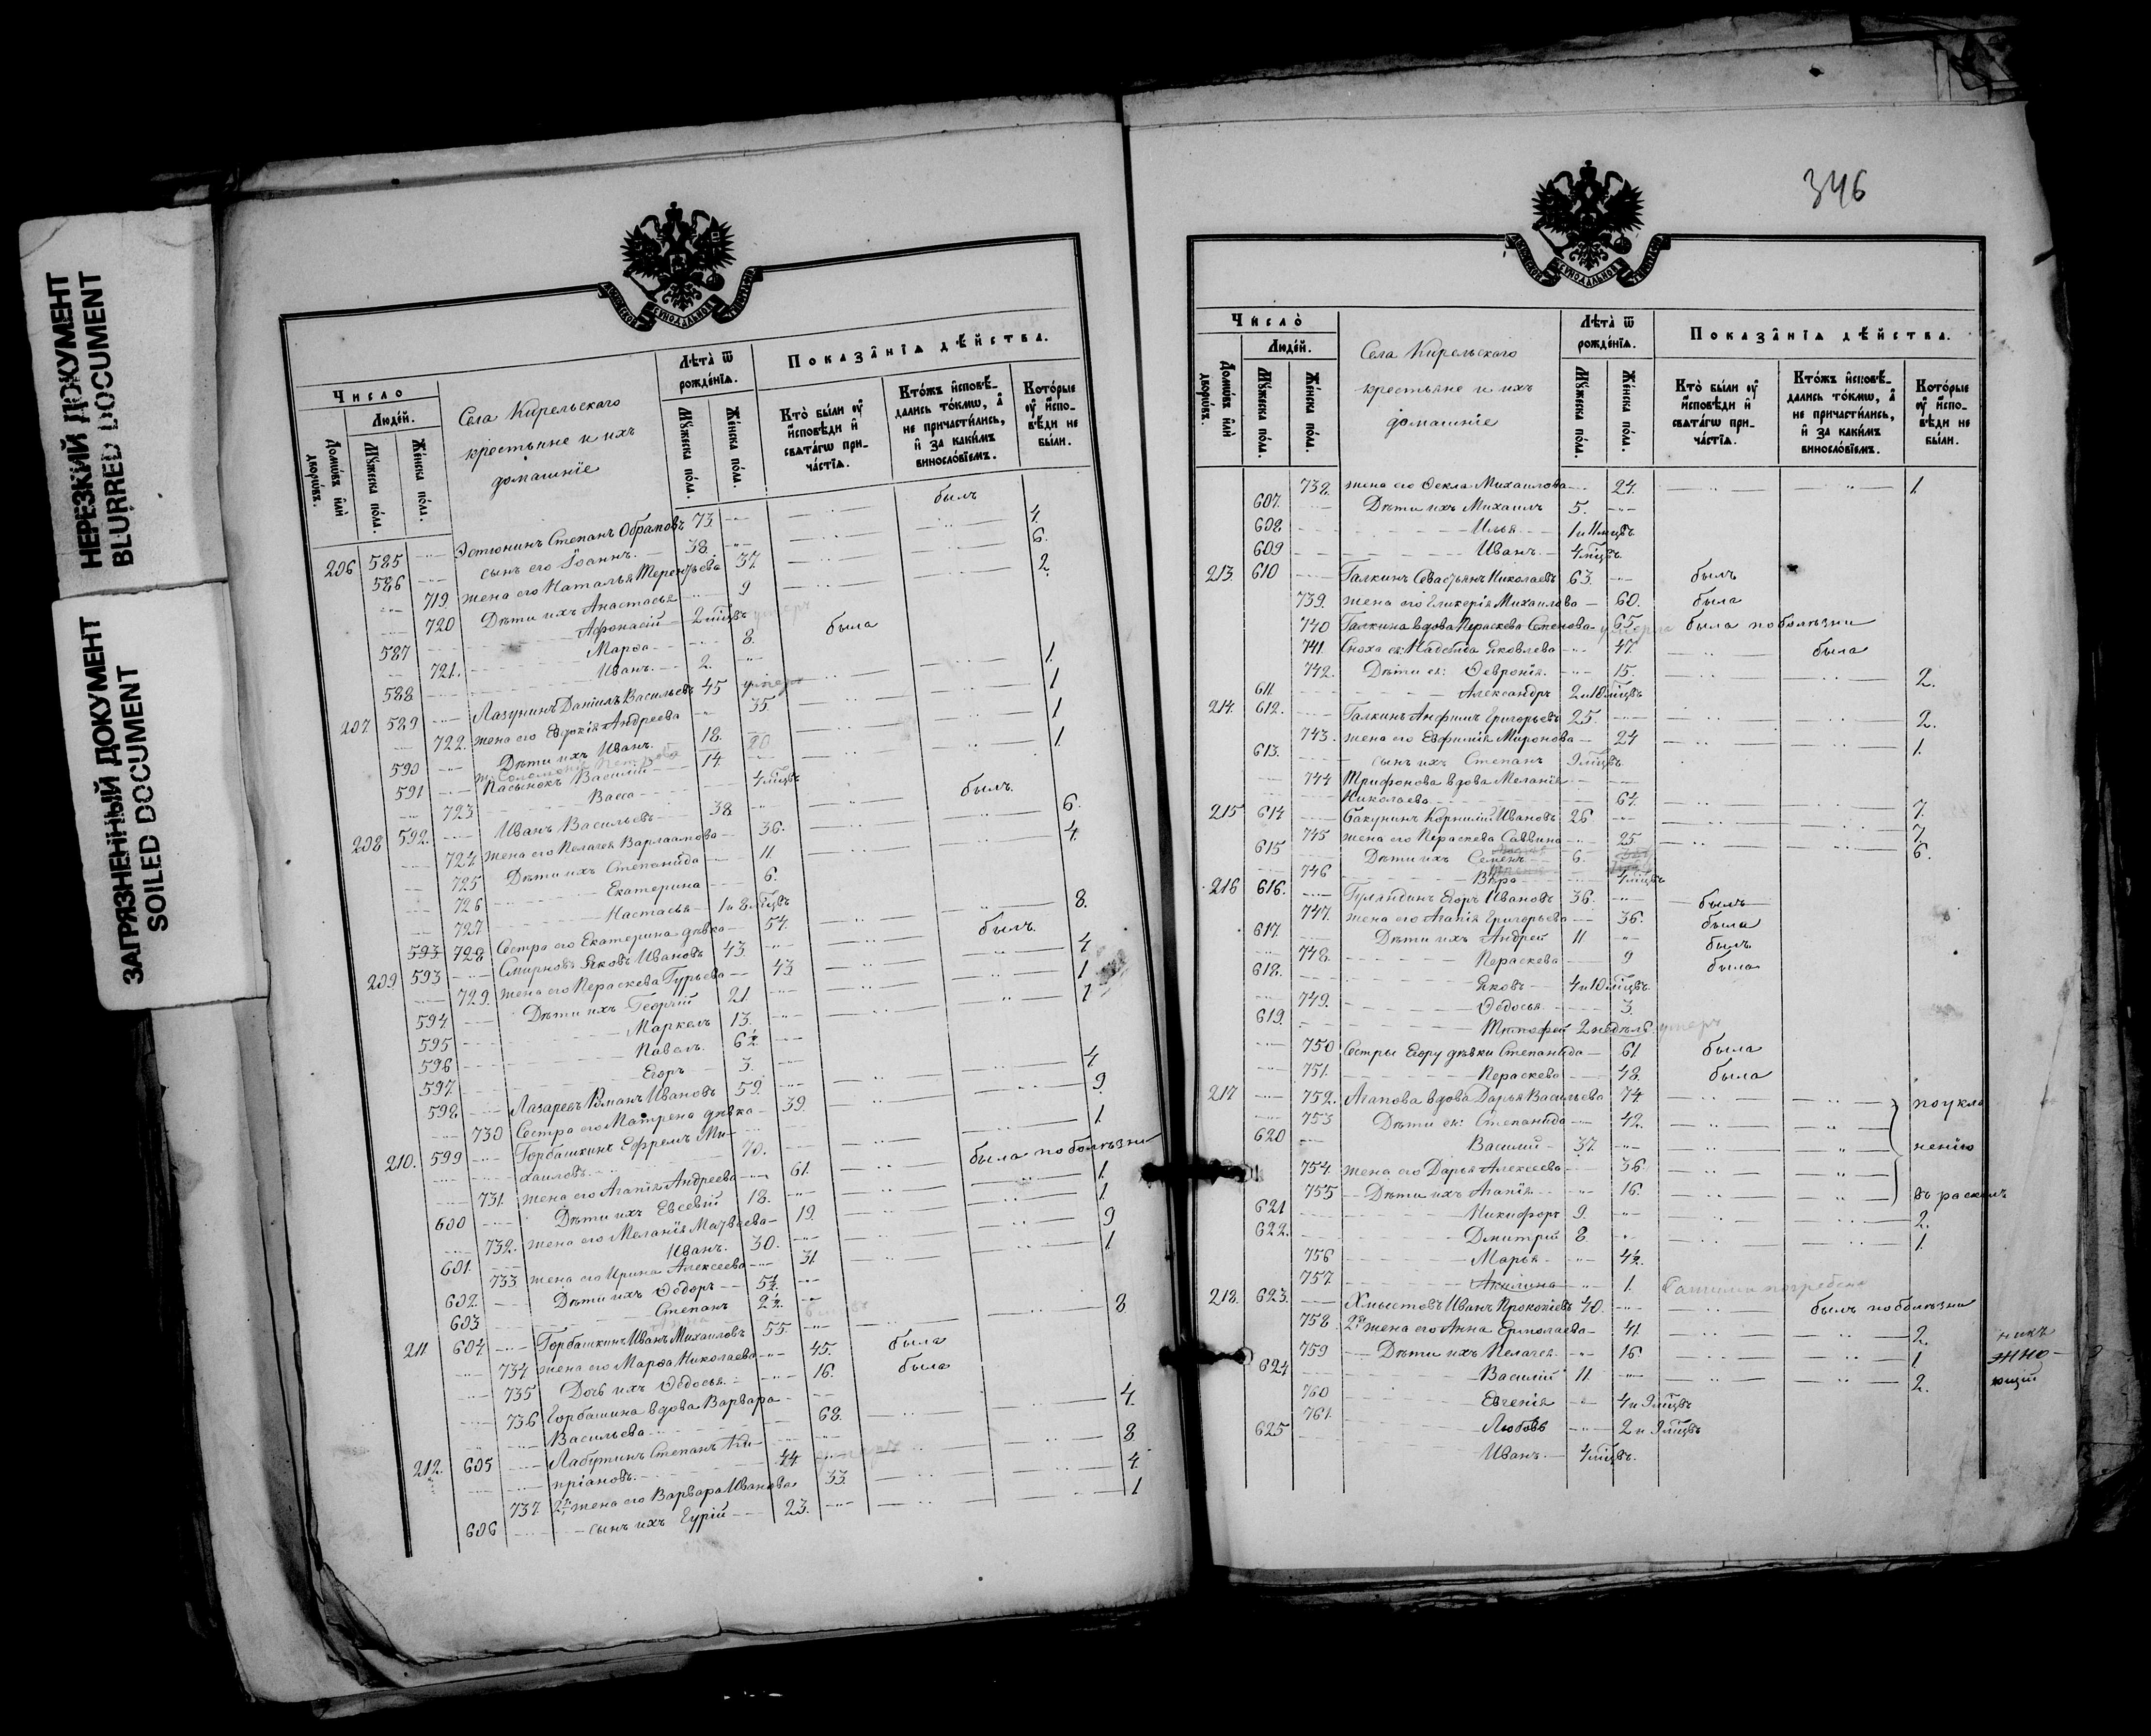 НЕРЕЗКИЙ ДОКУМЕНТ
BLURRED DOCUMENT
ЗАГРЯЗНЕННЫЙ ДОКУМЕНТ
SOILED DOCUMENT
Число
Людей.
Домовъ или дворовъ.
Мужеска пола.
Женска пола.
Села Кирельскаго
крестьяне и ихъ
домашніе
Лѣта ѿ рожденія.
Мужеска пола.
Женска пола.
Показанія дѣйства.
Кто были у исповѣди и святагω причастія.
Ктожъ исповѣдались токмω, а не причастились, и за какимъ винословіемъ.
Которые у исповѣди не были.
206 585 Степанъ Абрамовъ 73. былъ
586 сынъ его Іоаннъ. 38. 4.
719. жена его Наталья Терентьева 37. 6.
720 Дѣти ихъ Анастасья 9 2.
587 Афонасій 2 мѣцвъ умеръ
721. Марѳа 8. была
588 Иванъ. 2.
207. 589 Лазунинъ Даніилъ Васильевъ 45 умеръ 1.
722. жена его Евдокія Андреева 35. 1
590 Дѣти ихъ Иванъ. 18. 1
591 Пасынокъ Василій 14. 1.
723 Васса 4 мѣцвъ
208 592. Иванъ Васильевъ 38 былъ.
724. жена его Пелагея Варлаамова 36. 6.
725 Дѣти ихъ Степанида 11 4.
726 Екатерина 6.
727. Настасья 1 и 8 мѣцвъ
593 728 Сестра его Екатерина дѣвка 54. 8.
209 593 Смирновъ Яковъ Ивановъ 43. былъ.
729. жена его Параскева Гурьева 43 4
594. Дѣти ихъ Георгій 21 1
595 Маркелъ 13. 1
596 Павелъ. 6½
597. Егоръ 3.
598 Лазаревъ Романъ Ивановъ 59. 4
730 Сестра его Матрена дѣвка 39. 9.
210. 599 Горбашкинъ Ефремъ Ми-
хаиловъ. 70. 1.
731. жена его Агапія Андреева 61. была по болѣзни
600 Дѣти ихъ Евсевій 18. 1.
732. жена его Меланія Матвѣева 19. 1.
601. Иванъ. 30. 9
733 жена его Ирина Алексеева 31. 1.
602. Дѣти ихъ Ѳедоръ 5½
603 Степанъ 2½
211 604 Горбашкинъ Иванъ Михаиловъ 55. 8
734 жена его Марѳа Николаева 45. была
735 Дочь ихъ Ѳедосья 16. была
736 Горбашина вдова Варвара
Васильева 68. 4.
212. 605 Лабутинъ Степанъ Ки-
пріановъ. 44 умеръ 8
737. 2я жена его Варвара Иванова 33. 4.
606 сынъ ихъ Гурій 23. 1
346
Число
Людей.
Домовъ или дворовъ.
Мужеска пола.
Женска пола.
Села Кирельскаго
крестьяне и ихъ
домашніе
Лѣта ѿ рожденія.
Мужеска пола.
Женска пола.
Показанія дѣйства.
Кто были у исповѣди и святагω причастія.
Ктожъ исповѣдались токмω, а не причастились, и за какимъ винословіемъ.
Которые у исповѣди не были.
738. жена его Ѳекла Михаилова 24. 1.
607. Дѣти ихъ Михаилъ 5.
608 Илья 1 и 11 мцвъ.
609 Иванъ. 4 мѣцвъ.
213. 610 Галкинъ Севастьянъ Николаевъ 63. былъ
739. жена его Гликерія Михаилова 60. была
740 Галкина вдова Параскева Семенова 65. умерла была по болѣзни
741. Сноха ея: Надежда Яковлева 47 была
742. Дѣти ея: Ѳевронія. 15.
611. Александръ 2 и 10 мѣцвъ 2.
214. 612. Галкинъ Анфимъ Григорьевъ 25. 2.
743. жена его Евфимія Миронова 24 1.
613. сынъ ихъ Степанъ 9 мѣцвъ
744 Трифонова вдова Меланія
Николаева 64. 7.
215 614 Бакунинъ Корнилій Ивановъ 26 7.
745 жена его Параскева Саввина 25. 6.
615 Дѣти ихъ Семенъ 6.
746 Вѣра 4 мѣцвъ
216 616. Гуляндинъ Егоръ Ивановъ 36. былъ
747. жена его Агапія Григорьева 36. была
617. Дѣти ихъ Андрей 11 былъ
748. Параскева 9 была
618. Яковъ 4 и 10 мѣцвъ.
749. Ѳедосья 3.
619. Тимофей 2 недѣли умеръ
750 Сестры Егору дѣвки Степанида 61. была
751. Параскева 48. была
217 752. Агапова вдова Дарья Васильева 74 по укло
753 Дѣти ея: Степанида 42.
620 Василій 37. ненію
754. жена его Дарья Алексеева 36.
755 Дѣти ихъ Агапія 16. въ расколъ
621 Никифоръ 9. 2.
622. Дмитрій 8. 1.
756 Марья 4½.
757. Акилина 1.
218. 623. Хмыстовъ Иванъ Прокопіевъ 40. былъ по болѣзни
758 2я жена его Анна Ермолаева 41. 2.
759 Дѣти ихъ Пелагея 16. 1.
624 Василій 11. 2.
760 Евгенія 4 и 9 мѣцвъ
761. Любовь 2 и 9 мѣцвъ
625 Иванъ. 4 мѣцвъ.